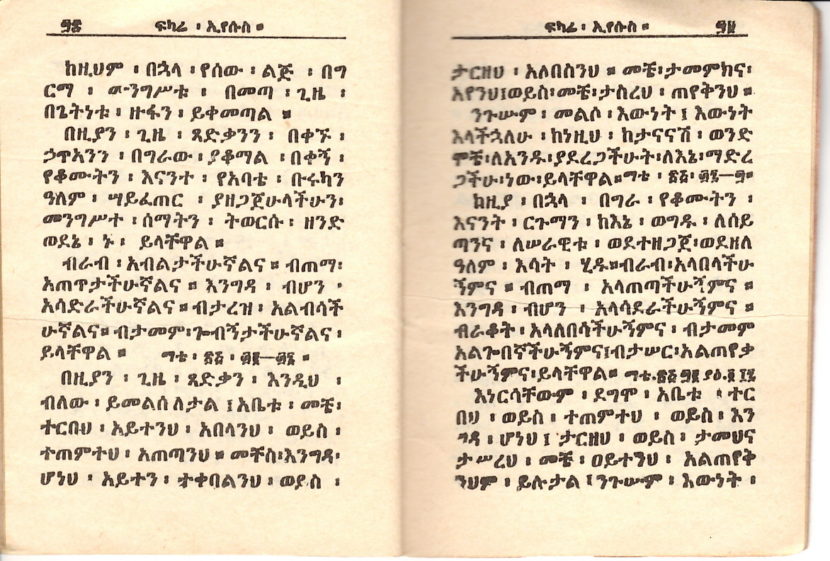 ፵፰ ፍካሬ ፡ ኢየሱስ ።
ከዚህም ፡ በኋላ ፡ የሰው ፡ ልጅ ፡ በግ
ርማ ፡ መንግሥቱ ፡ በመጣ ፡ ጊዜ ፡
በጌትነቱ ፡ ዙፋን ፡ ይቀመጣል ።
በዚያን ፡ ጊዜ ፡ ጻድቃንን ፡ በቀኙ ፡
ኃጥኣንን ፡ በግራው ፡ ያቆማል ፡ በቀኝ ፡
የቆሙትን ፡ እናንተ ፡ የአባቴ ፡ ቡሩካን
ዓለም ፡ ሣይፈጠር ፡ ያዘጋጀሁላችሁን፡
መንግሥተ ፡ ሰማትን ፡ ትወርሱ ፡ ዘንድ
ወደኔ ፡ ኑ ፡ ይላቸዋል ።
ብራብ ፡ አብልታችሁኛልና ። ብጠማ፡
አጠጥታችሁኛልና ። እንግዳ ፡ ብሆን ፡
አሳድራችሁኛልና ። ብታረዝ ፡ አልብሳች
ሁኛልና። ብታመም፡ጐብኝታችሁኛልና ፡
ይላቸዋል ። ማቴ ፡ ፳፭ ፡ ፴፩—፴፯ ።
በዚያን ፡ ጊዜ ፡ ጻድቃን ፡ እንዲህ ፡
ብለው ፡ ይመልሰለታል ፤ አቤቱ ፡ መቼ፡
ተርበህ ፡ አይተንህ ፡ አበላንህ ፡ ወይስ ፡
ተጠምተህ ፡ አጠጣንህ ። መቸስ፡እንግዳ፡
ሆነህ ፡ አይተን ፡ ተቀበልንህ ፡ ወይስ ፡
ፍካሬ ፡ ኢየሱስ ። ፵፱
ታርዘህ ፡ አለበስንህ ። መቼ፡ታመምክና፡
አየንህ፤ወይስ፡መቼ፡ታስረህ ፡ ጠየቅንህ ።
ንጉሡም ፡ መልሶ ፡ እውነት ፤ እውነት
እላችኋለሁ ፡ ከነዚህ ፡ ከታናናሽ ፡ ወንድ
ሞቼ፡ለአንዱ፡ያደረጋችሁት፡ለእኔ፡ማድረ
ጋችሁ፡ነው፡ይላቸዋል።ማቴ ፡ ፳፭፡ ፴፯—፵።
ከዚያ ፡ በኋላ ፡ በግራ ፡ የቆሙትን ፡
እናንት ፡ ርጉማን ፡ ከእኔ ፡ ወግዱ ፡ ለሰይ
ጣንና ፡ ለሠራዊቱ ፡ ወደተዘጋጀ፡ወደዘለ
ዓለም ፡ እሳት ፡ ሂዱ።ብራብ፡አላበላችሁ
ኝምና ። ብጠማ ፡ አላጠጣችሁኝምና ።
እንግዳ ፡ ብሆን ፡ አላሳደራችሁኝምና ።
ብራቆት ፡ አላለበሳችሁኝምና ፡ ብታመም
አልጐበኛችሁኝምና፤ብታሠር፡አልጠየቃ
ችሁኝምና፡ይላቸዋል።
እነርሳቸውም ፡ ደግሞ ፡ አቤቱ ፡ ተር
በህ ፡ ወይስ ፡ ተጠምተህ ፡ ወይስ ፡ እን
ግዳ ፡ ሆነህ ፤ ታርዘህ ፡ ወይስ ፡ ታመህና
ታሥረህ ፡ መቼ ፡ ዐይተንህ ፡ አልጠየቅ
ንህም ፡ ይሉታል ፤ ንጉሡም ፡ እውነት ፡